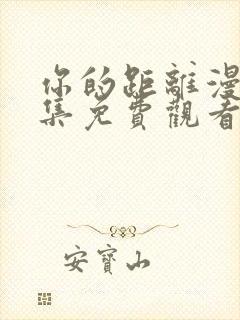 你的距離漫
集免費觀看
安寶山